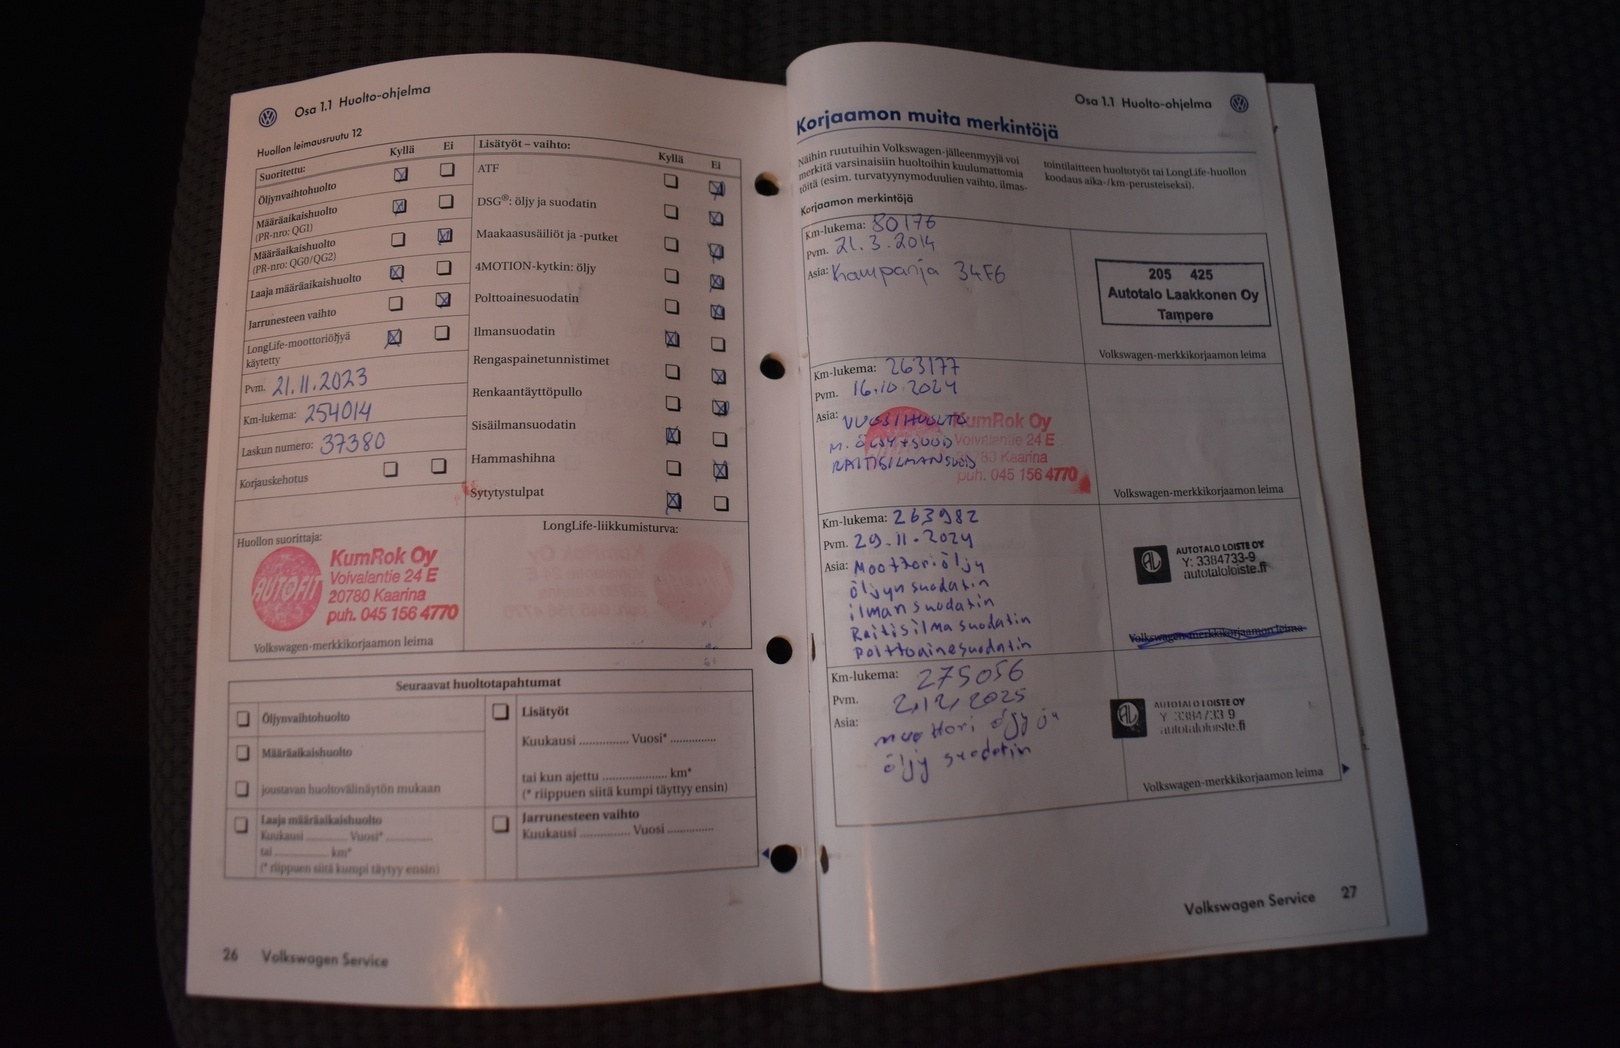 Osa 1.1 Huolto-ohjelma
Huollon leimausruutu 12
Suoritettu: Kyllä Ei
Öljynvaihtohuolto
Määräaikaishuolto
(PR-nro: QG1)
Määräaikaishuolto
(PR-nro: QG0/QG2)
Laaja määräaikaishuolto
Jarrunesteen vaihto
LongLife-moottoriöljyä
käytetty
Pvm. 21.11.2023
Km-lukema: 254014
Laskun numero: 37380
Korjauskehotus
Lisätyöt – vaihto: Kyllä Ei
ATF
DSG®: öljy ja suodatin
Maakaasusäiliöt ja -putket
4MOTION-kytkin: öljy
Polttoainesuodatin
Ilmansuodatin
Rengaspainetunnistimet
Renkaantäyttöpullo
Sisäilmansuodatin
Hammashihna
Sytytystulpat
Huollon suorittaja:
AUTOFIT
KumRok Oy
Voivalantie 24 E
20780 Kaarina
puh. 045 156 4770
Volkswagen-merkkikorjaamon leima
LongLife-liikkumisturva:
Seuraavat huoltotapahtumat
Öljynvaihtohuolto
Määräaikaishuolto
joustavan huoltovälinäytön mukaan
Laaja määräaikaishuolto
Kuukausi ............ Vuosi* ..............
tai ................ km*
(* riippuen siitä kumpi täytyy ensin)
Lisätyöt
Kuukausi .............. Vuosi* .............
tai kun ajettu .................... km*
(* riippuen siitä kumpi täyttyy ensin)
Jarrunesteen vaihto
Kuukausi .............. Vuosi ..............
26 Volkswagen Service
Osa 1.1 Huolto-ohjelma
Korjaamon muita merkintöjä
Näihin ruutuihin Volkswagen-jälleenmyyjä voi
merkitä varsinaisiin huoltoihin kuulumattomia
töitä (esim. turvatyynymoduulien vaihto, ilmas-
tointilaitteen huoltotyöt tai LongLife-huollon
koodaus aika-/km-perusteiseksi).
Korjaamon merkintöjä
Km-lukema: 80176
Pvm. 21.3.2014
Asia: Kampanja 34F6
205 425
Autotalo Laakkonen Oy
Tampere
Volkswagen-merkkikorjaamon leima
Km-lukema: 263177
Pvm. 16.10.2024
Asia: VUOSIHUOLTO
M. ÖLJY+SUOD
RAITISILMANSUOD
KumRok Oy
Voivalantie 24 E
20780 Kaarina
puh. 045 156 4770
Volkswagen-merkkikorjaamon leima
Km-lukema: 263982
Pvm. 29.11.2024
Asia: Moottoriöljy
öljynsuodatin
ilmansuodatin
Raitisilmasuodatin
Polttoainesuodatin
AL
AUTOTALO LOISTE OY
Y: 3384733-9
autotaloloiste.fi
Volkswagen-merkkikorjaamon leima
Km-lukema: 275056
Pvm. 2.12.2025
Asia: moottori öljy ja
öljy suodatin
AL
AUTOTALO LOISTE OY
Y 3384733-9
autotaloloiste.fi
Volkswagen-merkkikorjaamon leima
Volkswagen Service 27